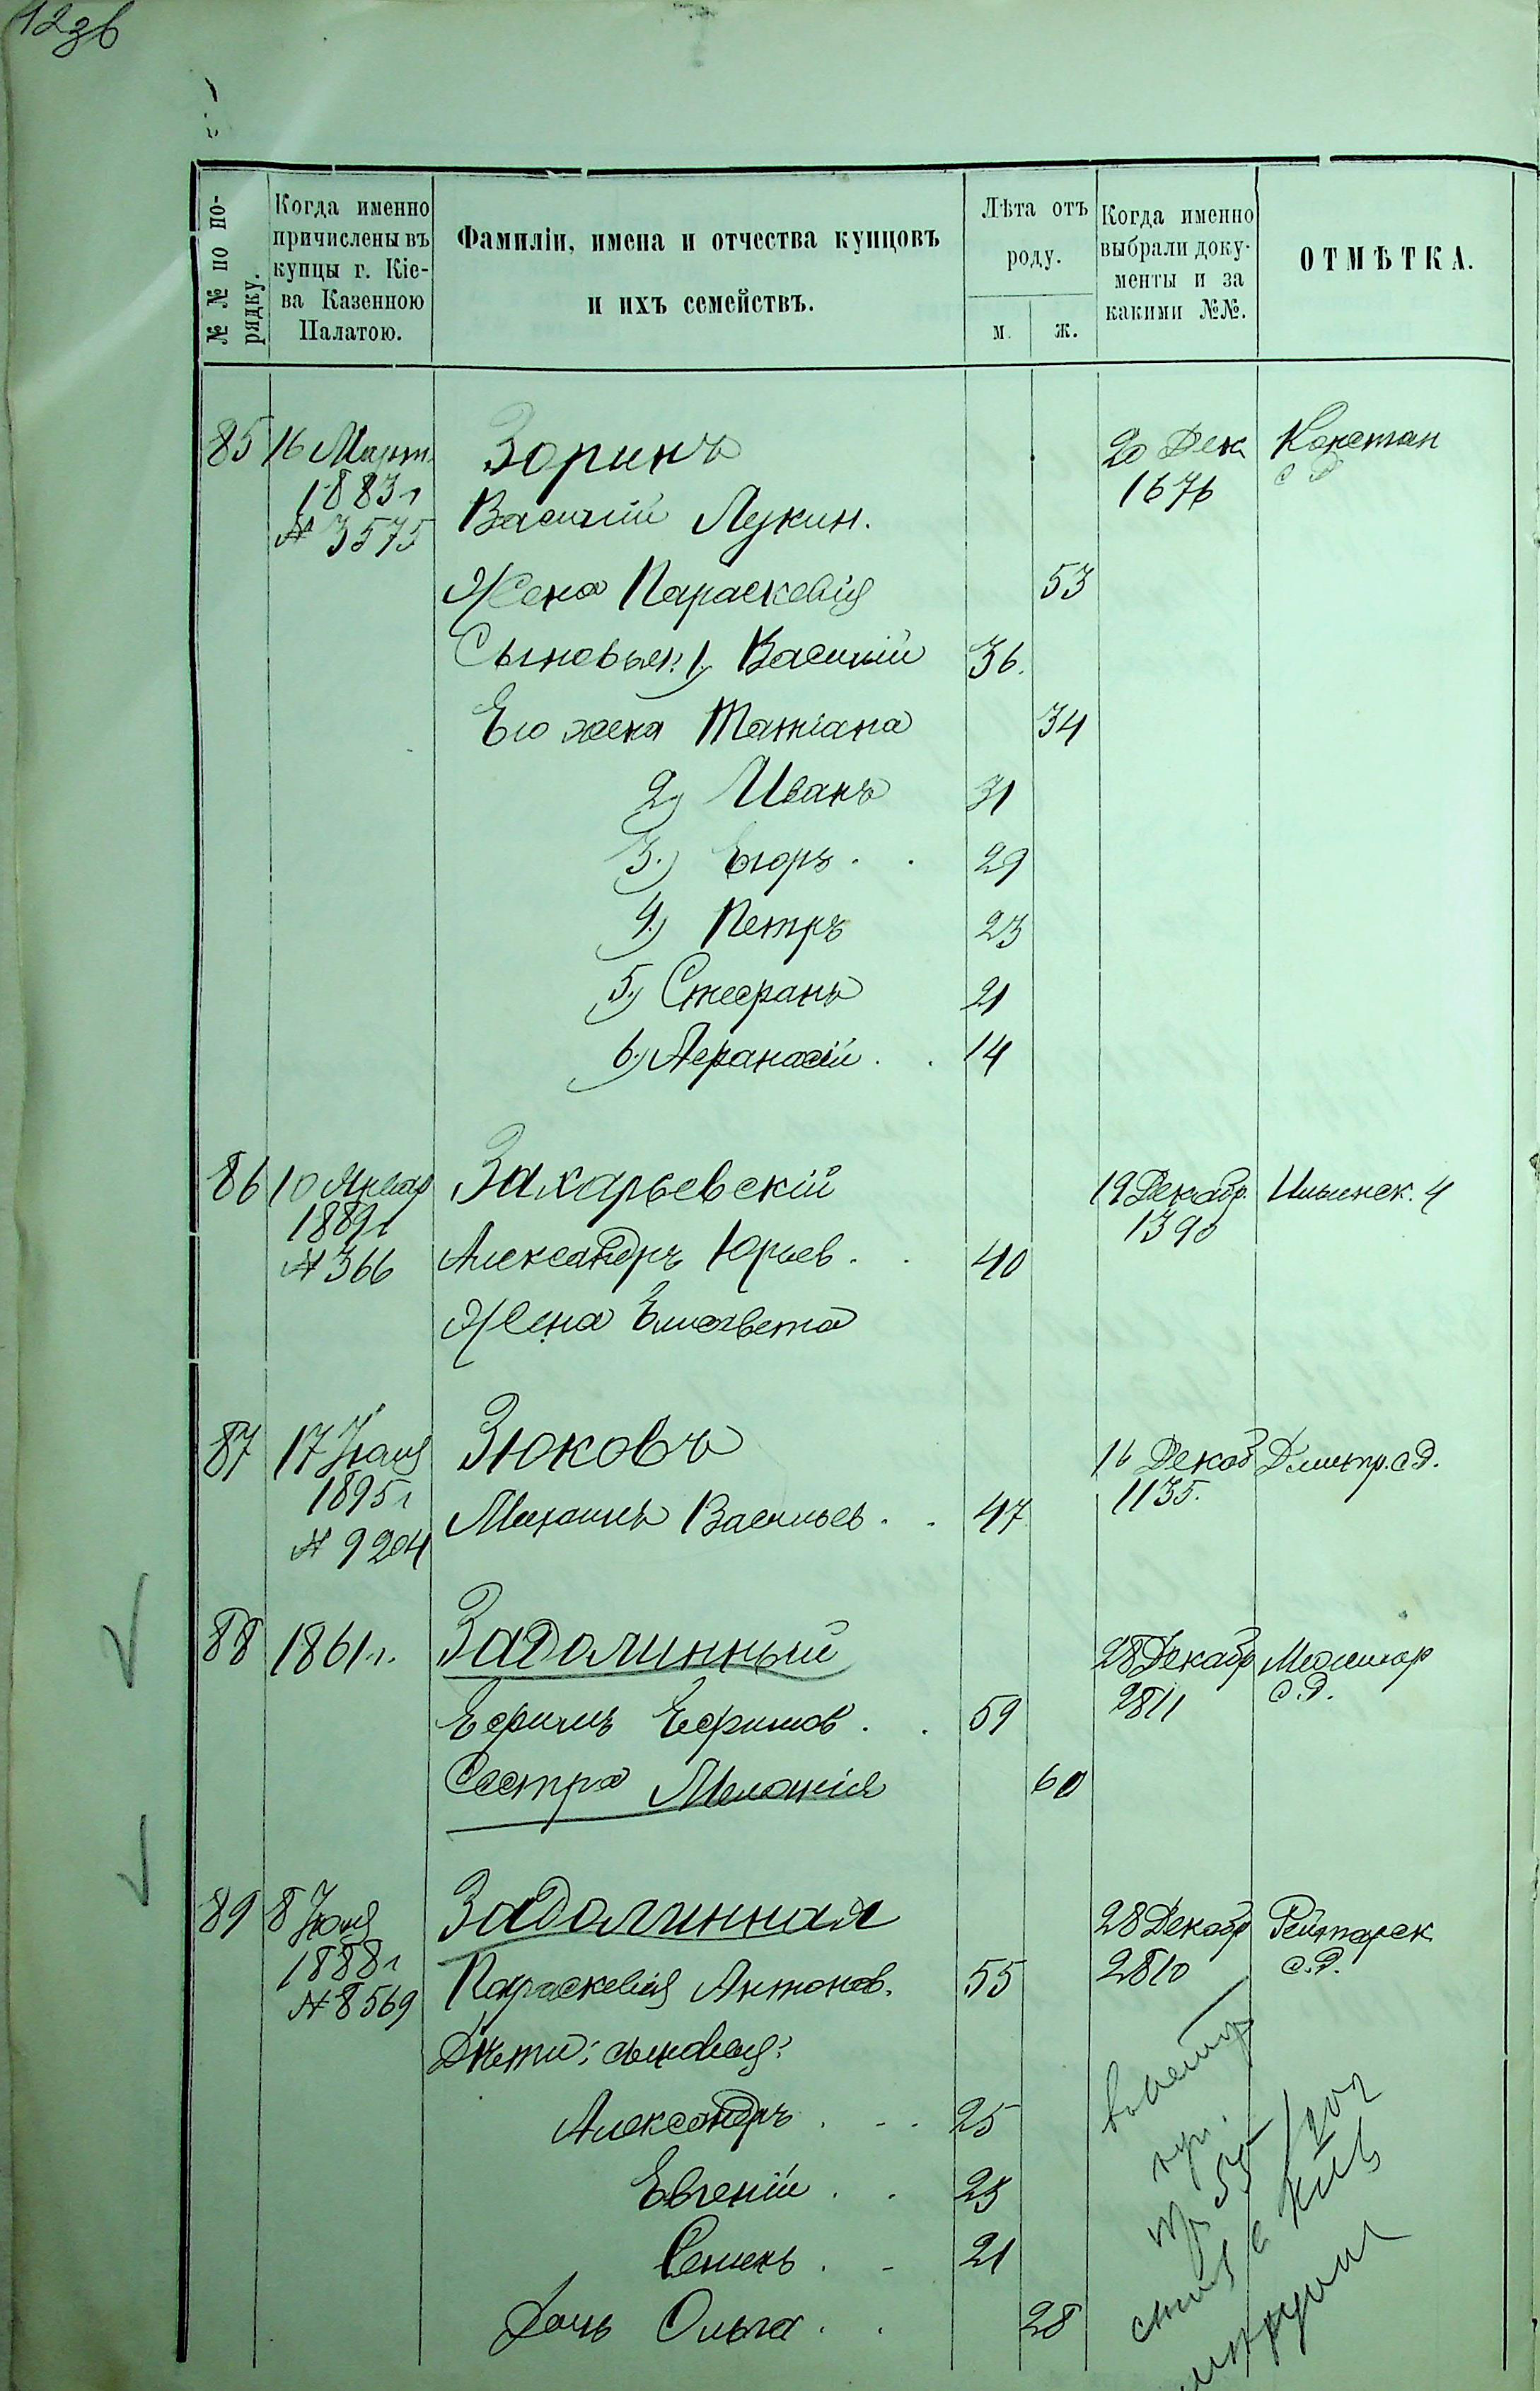 12зв
№ № по по-
рядку.
Когда именно
причислены въ
купцы г. Кіе-
ва Казенною
Палатою.
Фамиліи, имена и отчества купцовъ
и ихъ семействъ.
Лѣта отъ
роду.
м. ж.
Когда именно
выбрали доку-
менты и за
какими №№.
ОТМѢТКА.
85 16 Март. Зоринъ 20 Дек Констан
1883 г 1676 с д
№ 3575 Василій Лукин.
Жена Параскевія 53
Сыновья: 1) Василій 36.
Его жена Татіана 34
2) Иванъ 31
3.) Егоръ . . 29
4.) Петръ 23
5.) Стефанъ 21
6.) Афанасій . . 14
86 10 Январ Захарьевскій 19 Декабр. Ильинск. 4
1889 г 1390
№ 366 Александръ Юрьев . . 40
Жена Елисавета
87 17 Іюля Зюковъ 16 Декаб Дмитр. с д.
1895 г 1135.
№ 9204 Михаилъ Васильев . . 47
88 1861 г. Задолинный 28 Декабр
2811 с. д.
Ефимъ Ефимов . . 59
Сестра Меланія 60
89 8 Задолинная 28 Декабр Рейтарск
1888 г 2810 с. д.
№ 8569 Параскевія Антонов. 55
Дѣти: сыновья:
Александръ . . . 25
Евгеній . . 23
Семенъ . . 21
Дочь Ольга . . 28